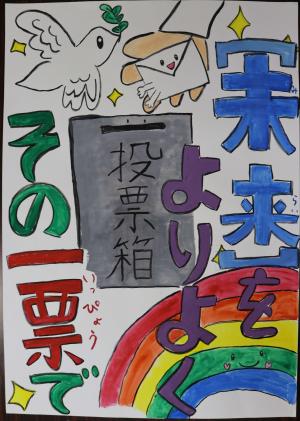 【未来】を
み らい
よりよく
投票箱
その一票で
いっぴょう